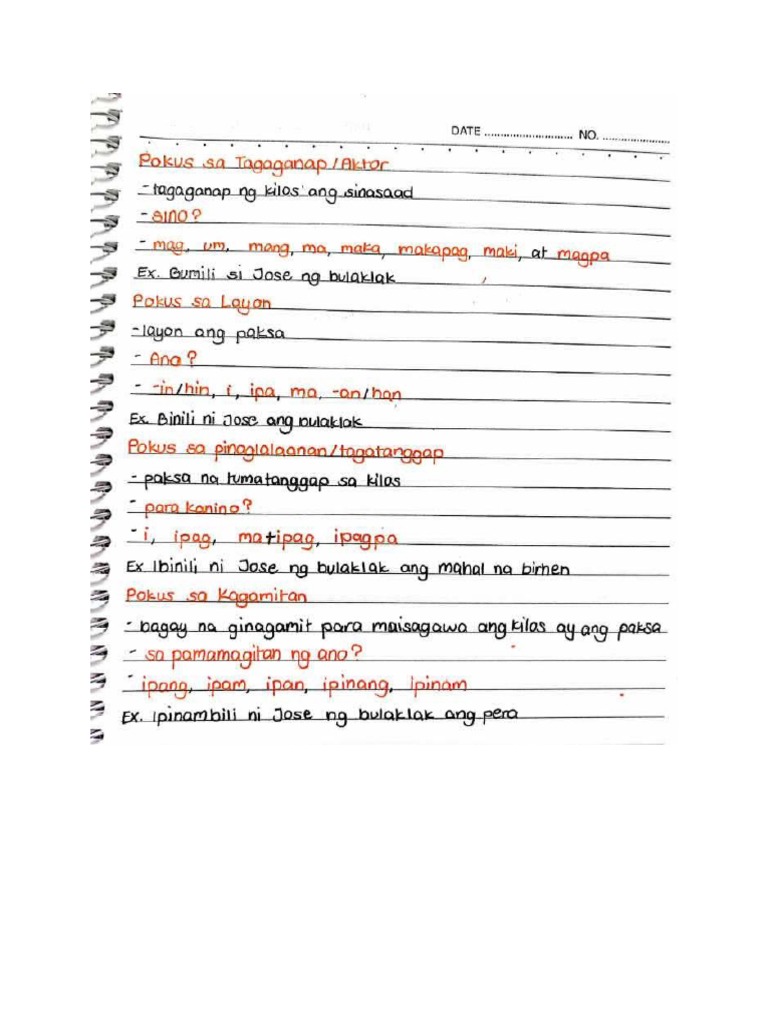 DATE ............................. NO. ......................
Pokus sa Tagaganap/Aktor
- tagaganap ng kilos ang sinasaad
- sino?
- mag, um, mang, ma, maka, makapag, maki, at magpa
Ex. Bumili si Jose ng bulaklak
Pokus sa Layon
- layon ang paksa
- Ano?
- -in/hin, i, ipa, ma, -an/han
Ex. Binili ni Jose ang bulaklak
Pokus sa pinaglalaanan/tagatanggap
- paksa na tumatanggap sa kilos
- para kanino?
- i, ipag, ma+ipag, ipagpa
Ex Ibinili ni Jose ng bulaklak ang mahal na birhen
Pokus sa Kagamitan
- bagay na ginagamit para maisagawa ang kilos ay ang paksa
- sa pamamagitan ng ano?
- ipang, ipam, ipan, ipinang, ipinam
Ex. Ipinambili ni Jose ng bulaklak ang pera